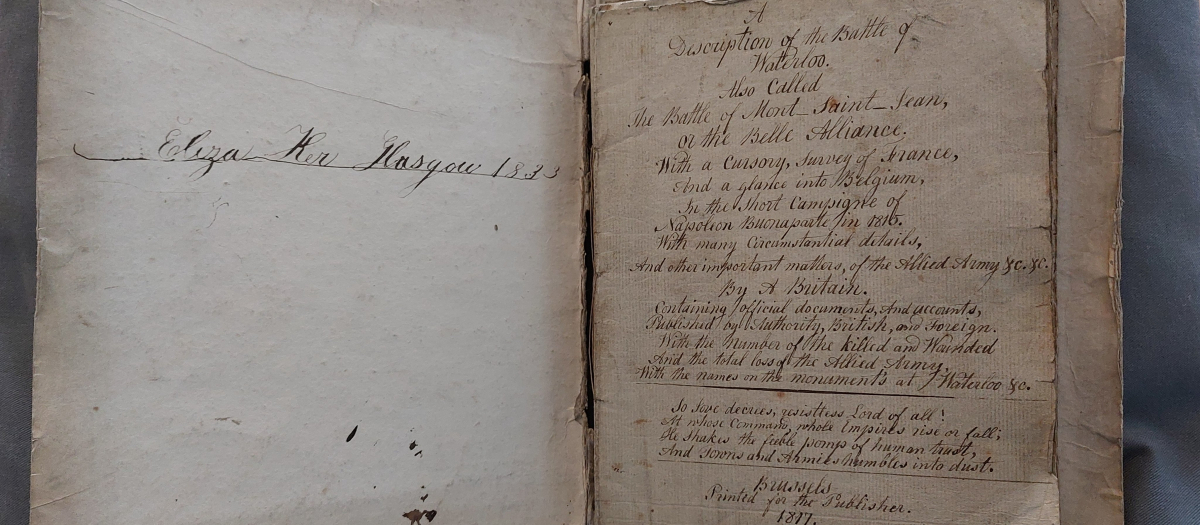 Eliza Her Glasgow 1833
A
Description of the Battle of
Waterloo.
Also Called
The Battle of Mont-Saint-Jean,
or the Belle Alliance.
With a Cursory, Survey of France,
And a glance into Belgium,
In the Short Campaigne of
Napoleon Buonaparte in 1815.
With many Circumstantial details,
And other important matters, of the Allied Army &c. &c.
By A Britain.
Containing official documents, And accounts,
Published by Authority, British, and Foreign.
With the number of the killed and Wounded
And the total loss of the Allied Army,
With the names on the monuments at Waterloo &c.
So Jove decrees, resistless Lord of all!
At whose Command, whole Empires rise or fall;
He shakes the feeble pomps of human trust,
And Towns and Armies humbles into dust.
Brussels
Printed for the Publisher.
1817.